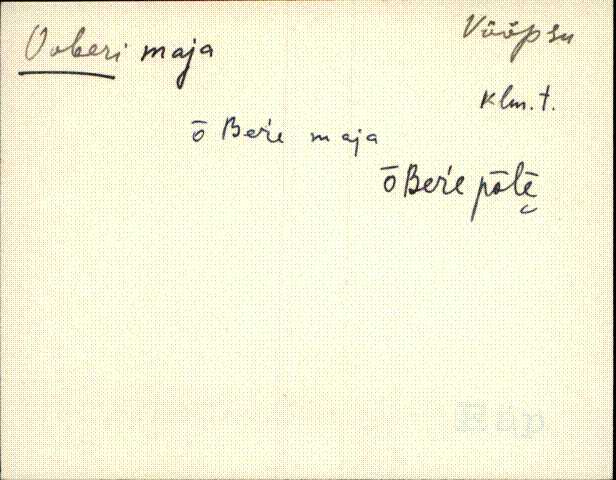 Ooberi maja
Vööpsu
Klm. t.
ō Beŕe maja
ō Beŕe pōlē
Räp